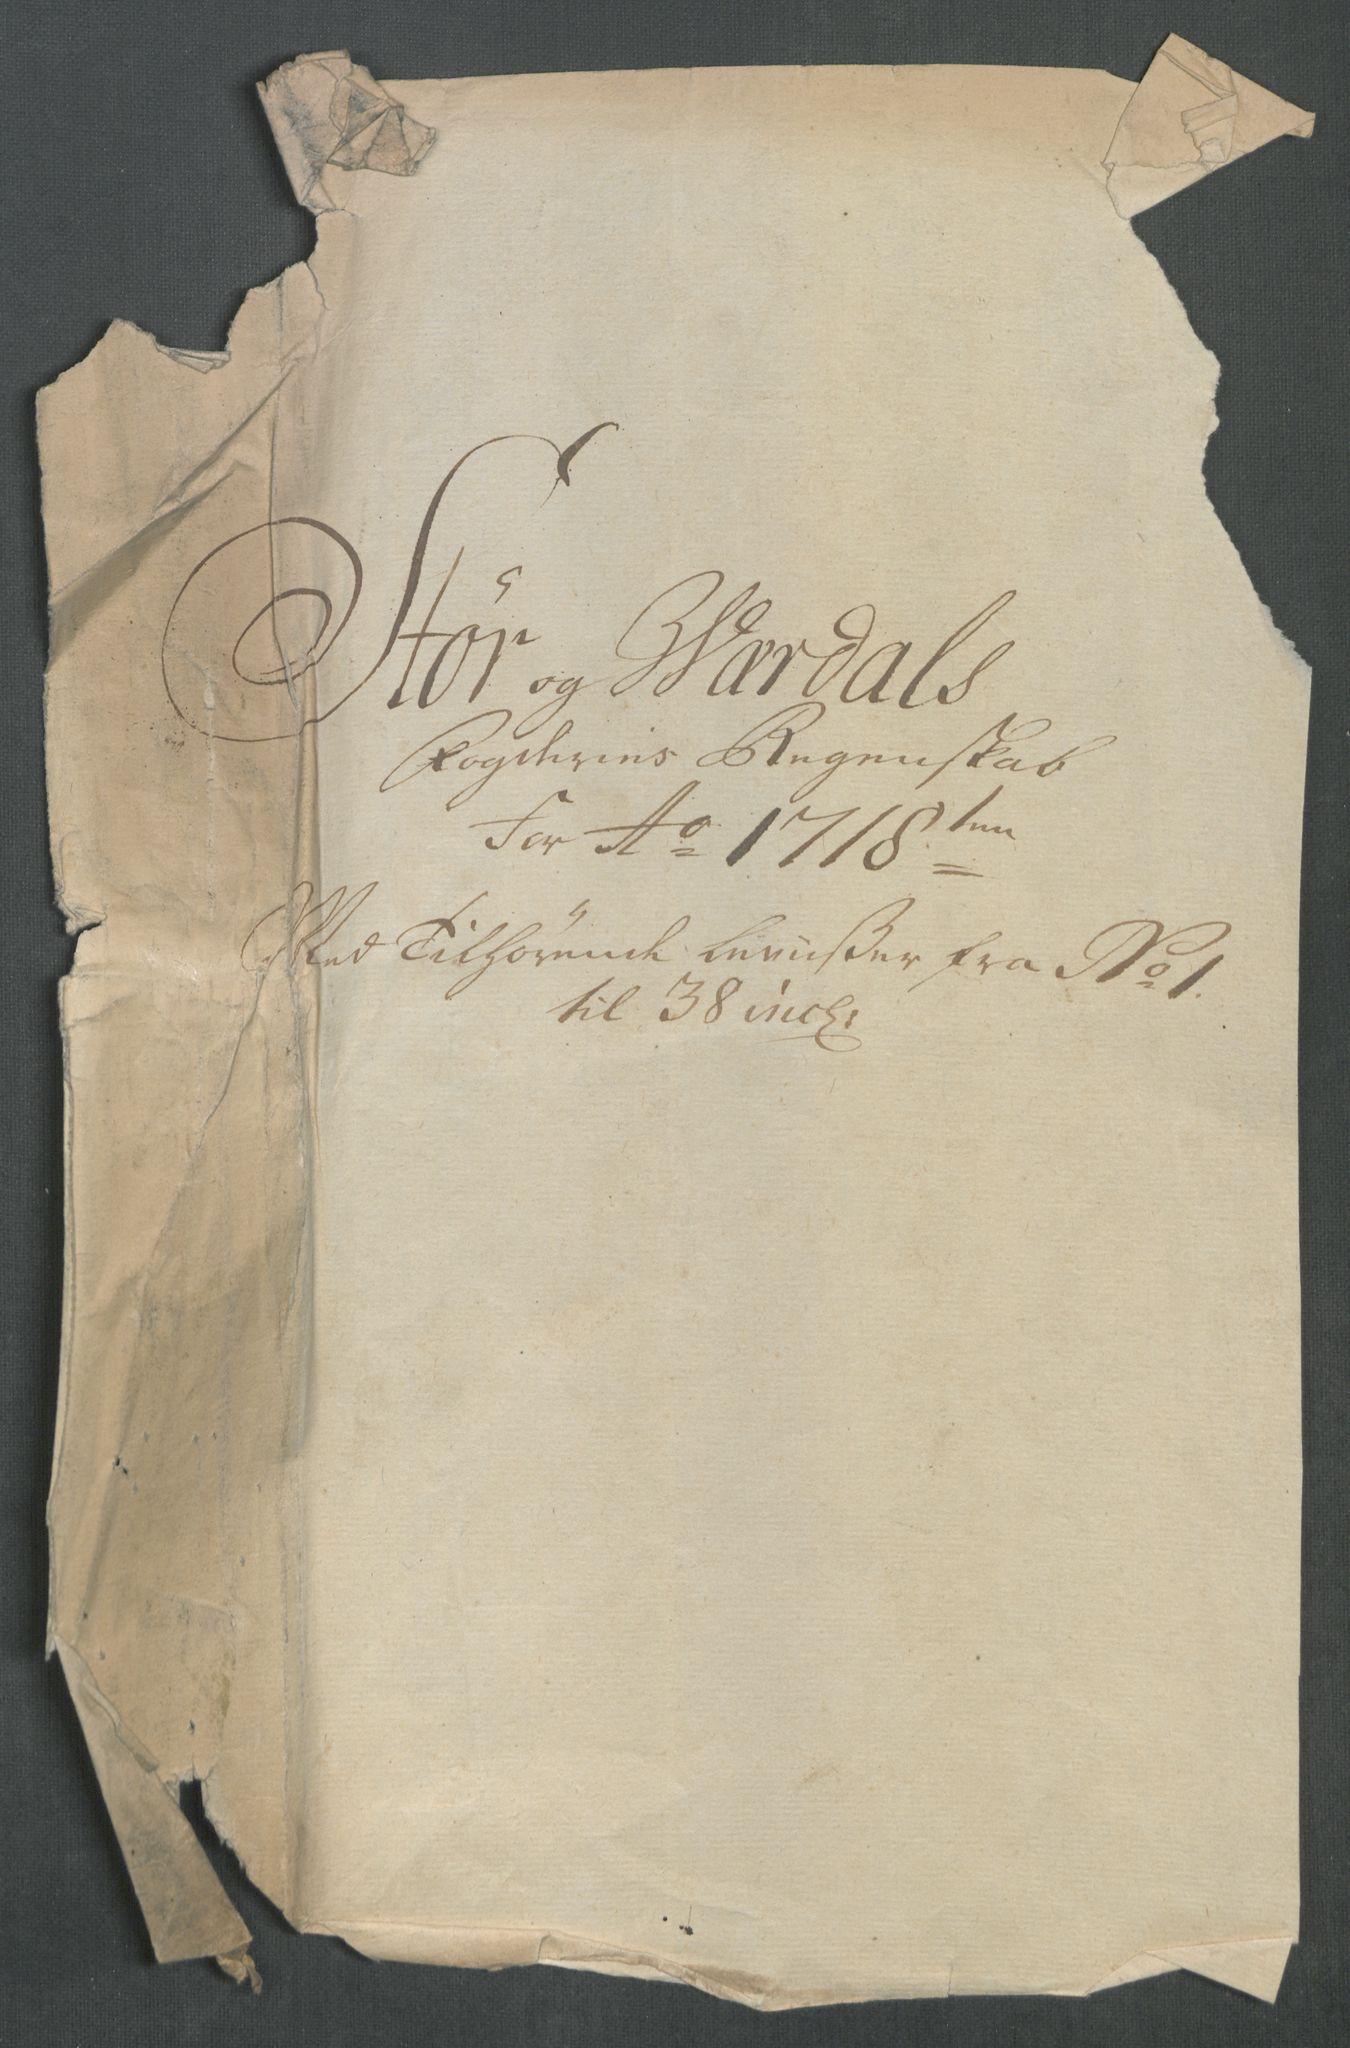 Stör og Værdals
Fogderies Regenskab
For Ao 1718ten
Med Tilhörende beviißer fra No 1.
til 38 incl: